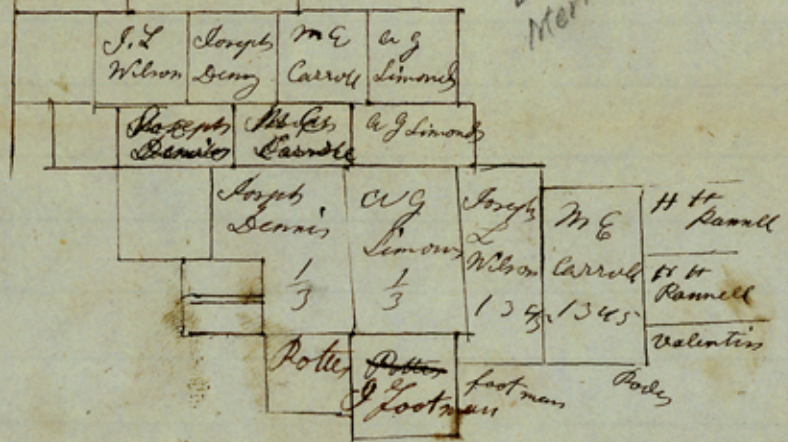 Mer
J. L
Wilson
Joseph
Denny
M E
Carroll
A G
Simonds
Joseph
Dennis
M E
Carroll
A G Simonds
Joseph
Dennis
1/3
A G
Simons
1/3
Joseph
L
Wilson
1345
M E
Carroll
1345
H H
Rannell
H H
Rannell
Valentin
Potter
Potter
J Footman
footman